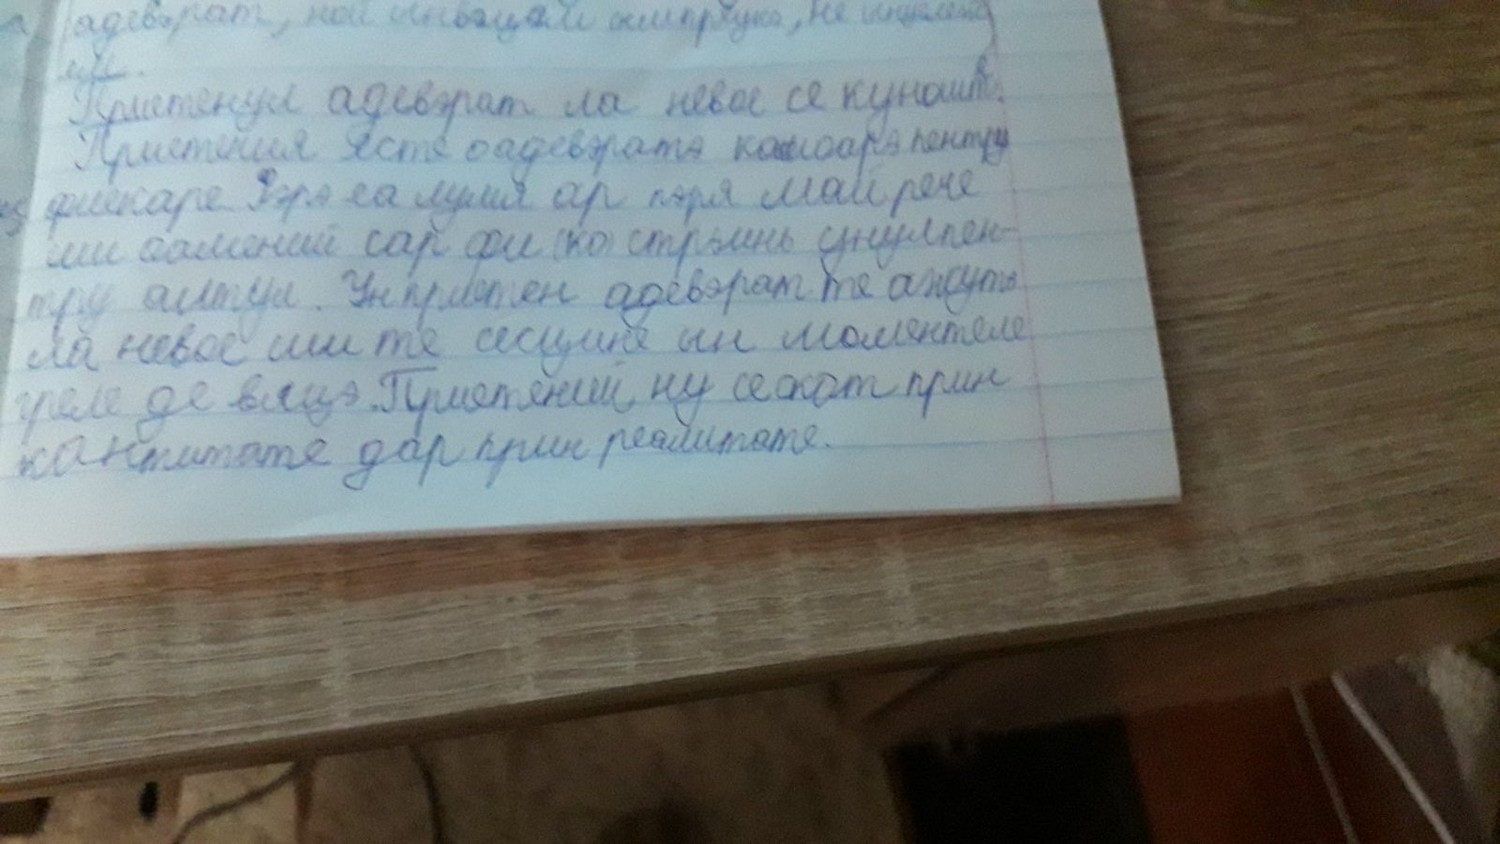 адевэрат, ной ынвэцэм ымпреунэ, не
Приетенул адевэрат ла невое се куноаште.
Приетения ясте оадевэратэ комоарэ пентру
фиекаре Фэрэ еа лумя ар пэря май рече
ши оамений сар фи ка стрэинь унулпен-
тру алтул. Унприетен адевэрат те ажутэ
ла невое ши те сусцине ын моментеле
греле де вяцэ. Приетений ну се скот прин
кантитате дар прин реалитате.